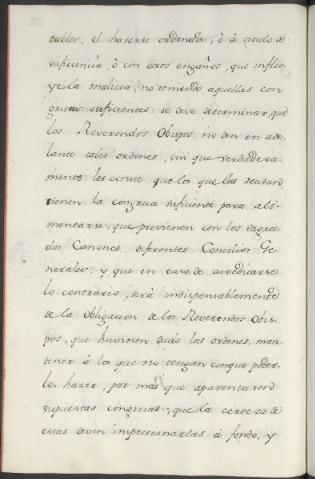 tables, el hacerse ordenado, ò à titulo de
suficiencia, ò con otros engaños, que influ-
ye la malicia, no teniendo aquellas con
gruas suficientes: se deve determinar, que
los Reverendos Obispos no den en ade
lante tales ordenes, sin que verdadera-
mente les conste, que los que las reciban
tienen la congrua suficiente para ali-
mentarse, que previenen con los Sagra-
dos Canones, diferentes Concilios Ge-
nerales; y que en caso de acreditarse
lo contrario, será indispensablemente
de la obligacion de los Reverendos Obis-
pos, que huvieren dado las ordenes, man-
tener à los que no tengan con que poder-
lo hazer, por mas que aparentaren
supuestas congruas; que la certeza de
estas deven inspeccionarlas à fondo, y